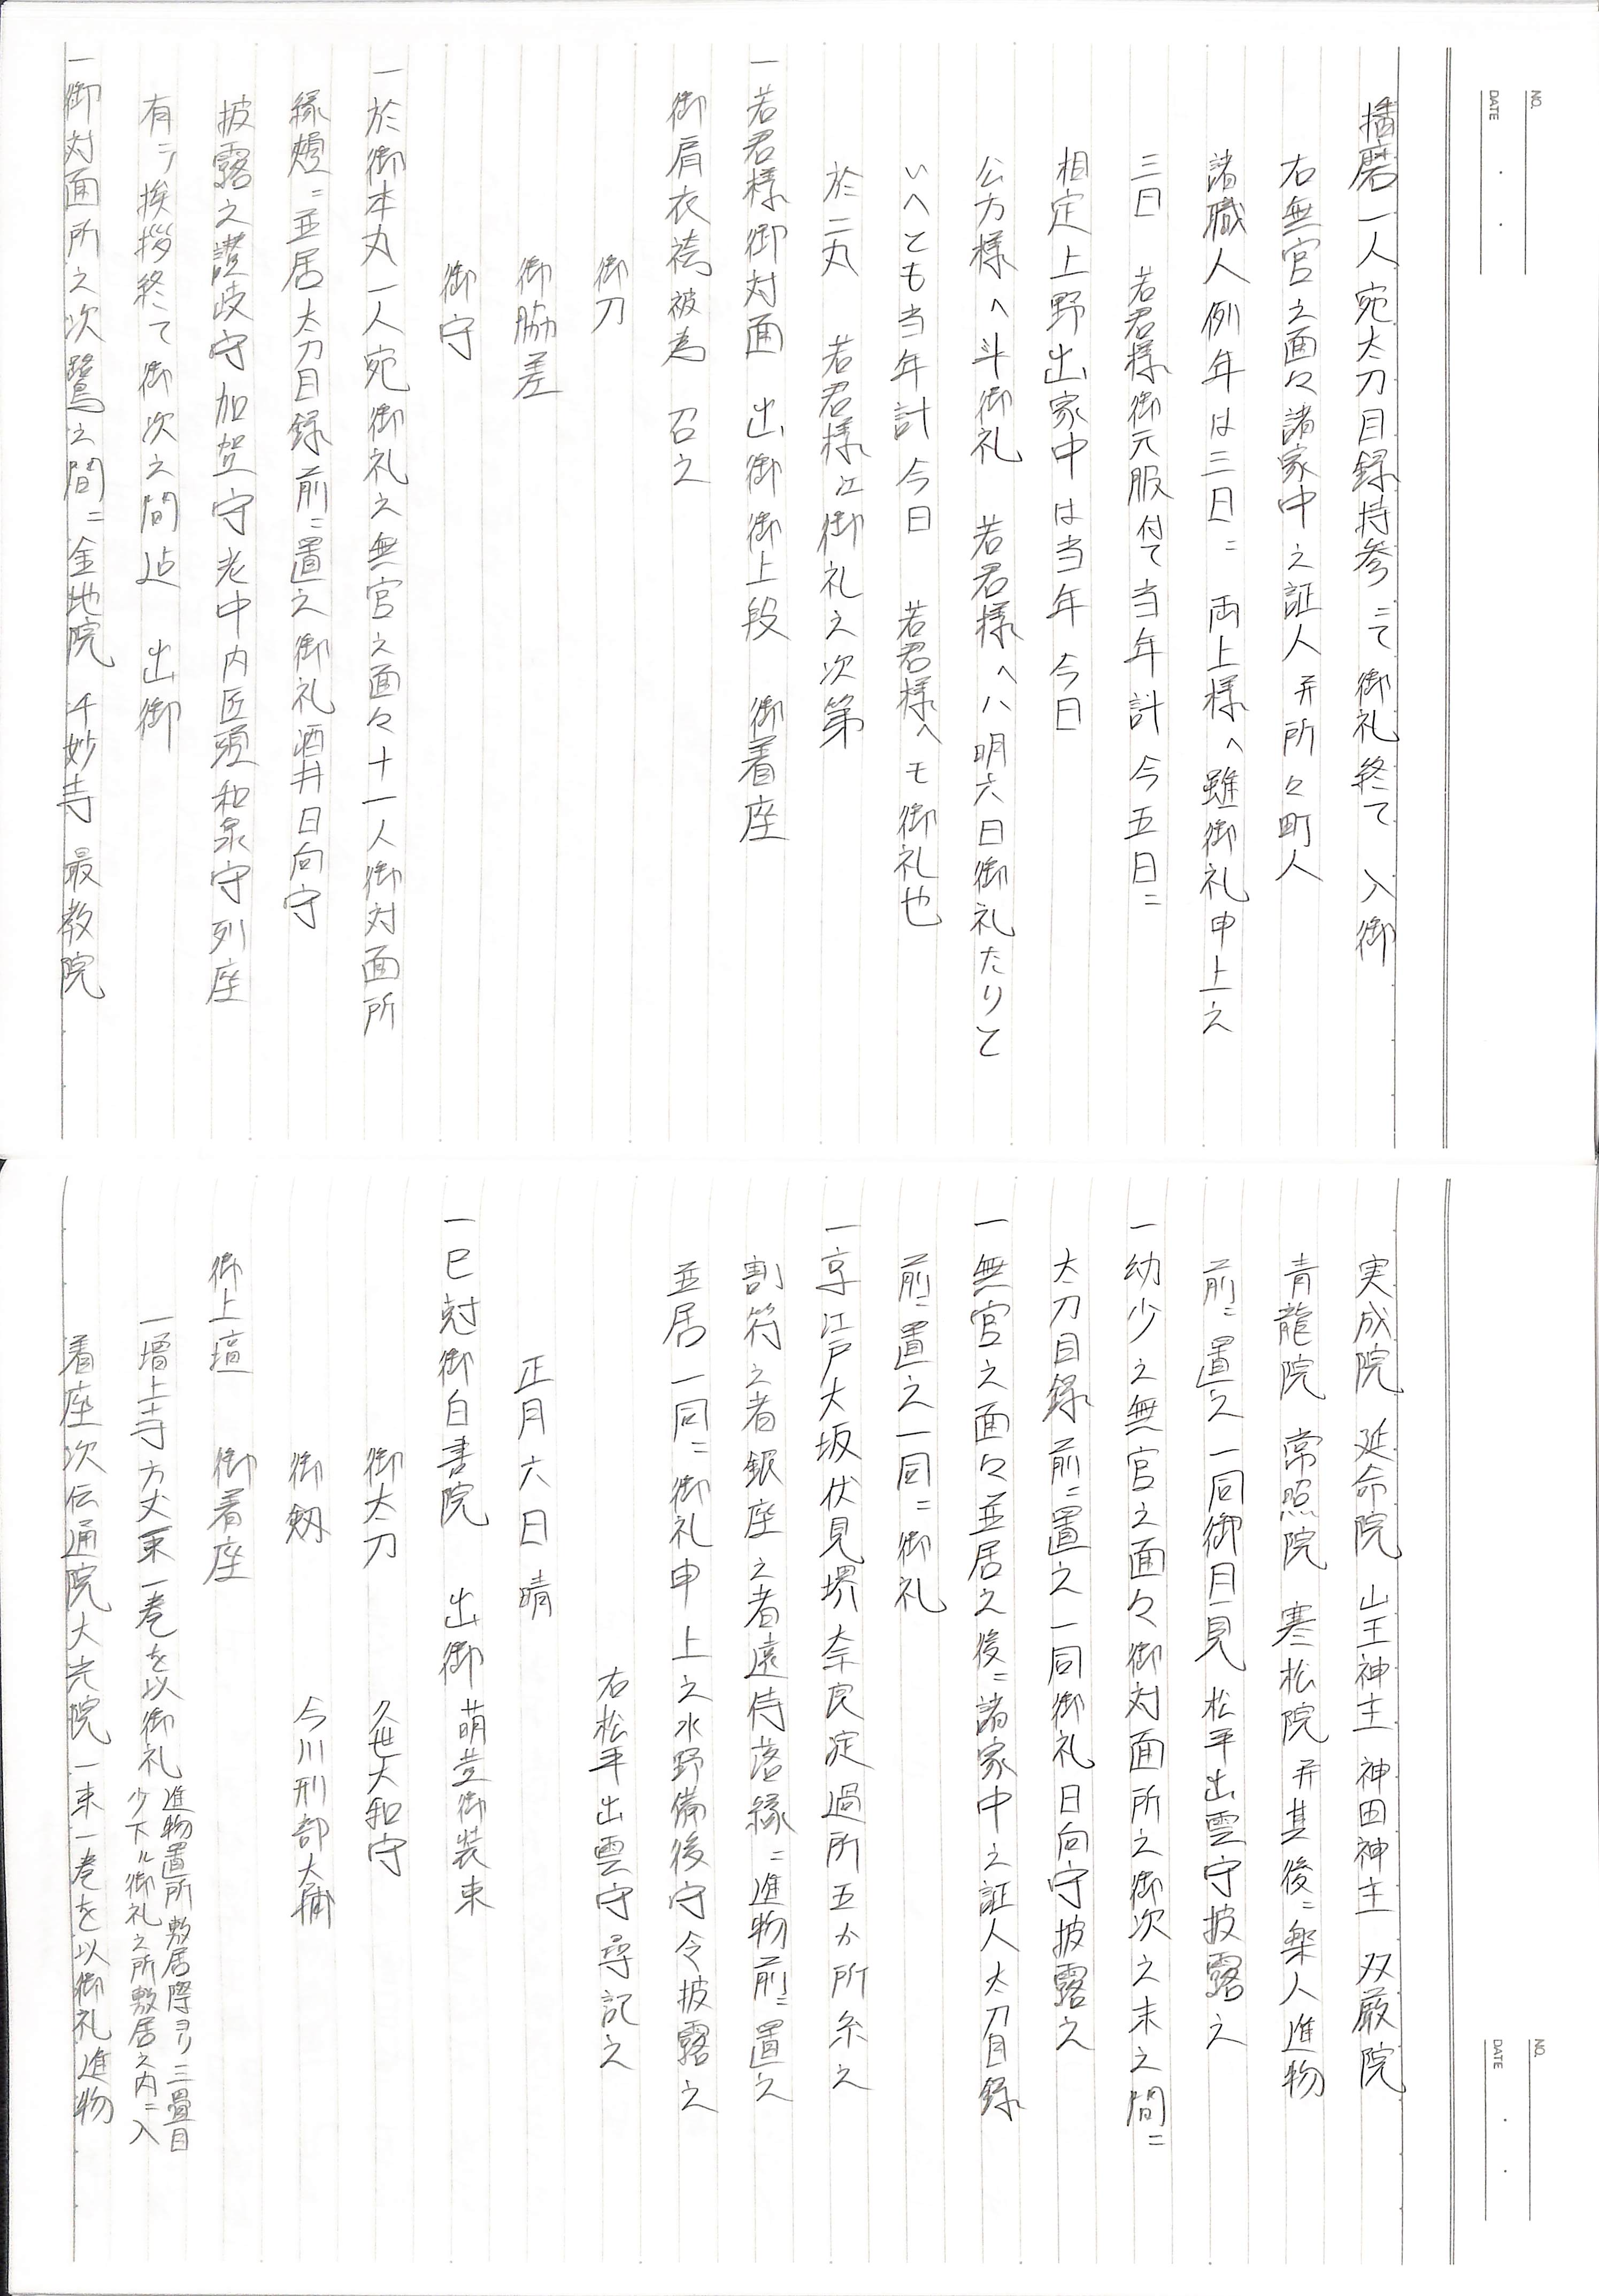 NO.
DATE
播磨一人宛太刀目録持参ニて御礼終て 入御
右無官之面々諸家中之証人并所々町人
諸職人例年は三日ニ 両上様へ雖御礼申上之
三日 若君様御元服付て当年計今五日ニ
相定上野出家中は当年今日
公方様へ斗御礼 若君様へハ明六日御礼たりと
いへとも当年計今日 若君様へモ御礼也
於二丸 若君様江御礼之次第
一若君様御対面 出御御上段 御着座
御肩衣袴被為 召之
御刀
御脇差
御守
一於御本丸一人宛御礼之無官之面々十一人御対面所
縁頬ニ並居太刀目録前ニ置之御礼酒井日向守
披露之讃岐守加賀守老中内匠頭和泉守列座
有テ挨拶終て御次之間迠 出御
一御対面所之次鷺之間ニ金地院 千妙寺 最教院
NO.
DATE
実成院 延命院 山王神主 神田神主 双厳院
青龍院 常照院 寒松院并其後ニ楽人進物
前ニ置之一同御目見松平出雲守披露之
一幼少之無官之面々御対面所之御次之末之間ニ
太刀目録前ニ置之一同御礼日向守披露之
一無官之面々並居之後ニ諸家中之証人太刀目録
前ニ置之一同ニ御礼
一京江戸大坂伏見堺奈良淀過所五か所糸之
割符之者銀座之者遠侍落縁ニ進物前ニ置之
並居一同ニ御礼申上之水野備後守令披露之
右松平出雲守尋記之
正月六日晴
一巳尅御白書院 出御 萌黄御装束
御太刀 久世大和守
御剱 今川刑部大輔
御上壇 御着座
一増上寺方丈一束一巻を以御礼 進物置所敷居際ヨリ三畳目
少下ル御礼之所敷居之内ニ入
着座次伝通院大光院一束一巻を以御礼進物